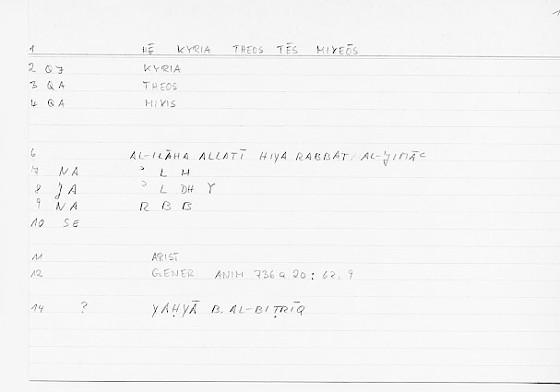 1 HĒ KYRIA THEOS TĒS MIXEŌS
2 QJ KYRIA
3 QA THEOS
4 QA MIXIS
6 AL-ILĀHA ALLATĪ HIYA RABBAT AL-ǦIMĀʿ
7 NA ʾ L H
8 ǦA ʾ L DH Y
9 NA R B B
10 SE
11 ARIST
12 GENER ANIM 736 A 20 : 62, 9
14 ? YAḤYĀ B. AL-BIṬRĪQ